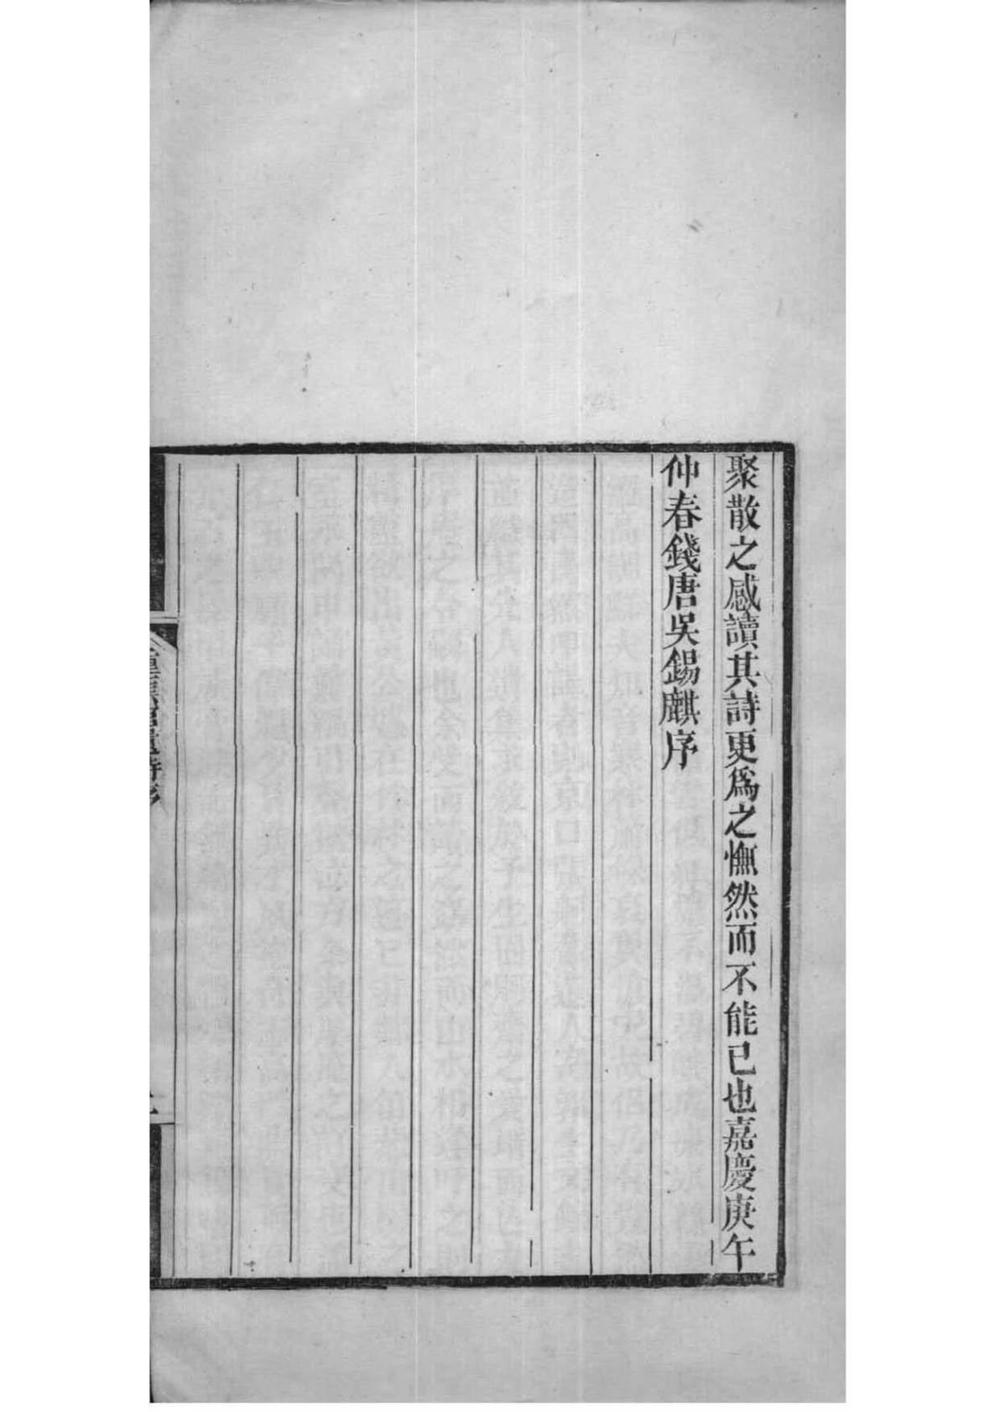 聚散之感讀其詩更爲之憮然而不能已也嘉慶庚午
仲春錢唐吳錫麒序